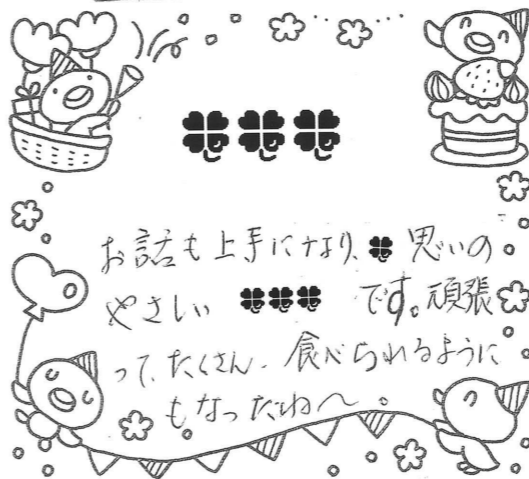 お話も上手になり、思いの
やさしい です。頑張
って、たくさん、食べられるように
もなったね〜。